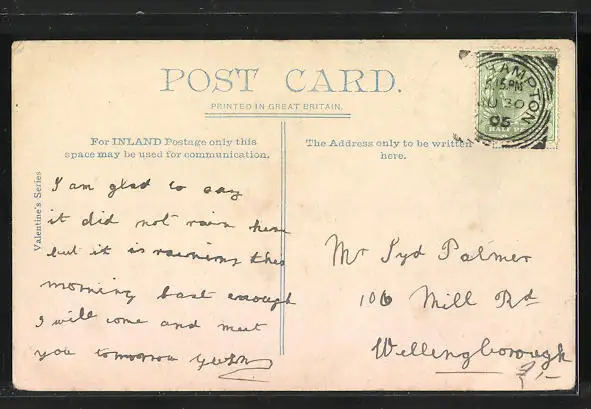 POST CARD.
PRINTED IN GREAT BRITAIN.
For INLAND Postage only this
space may be used for communication.
The Address only to be written
here.
Valentine's Series
HAMPTON
15 PM
U 30
05
HALF PE
I am glad to say
it did not rain here
but it is raining this
morning bad enough
I will come and meet
you tomorrow
Mr Syd Palmer
106 Mill Rd
Wellingborough